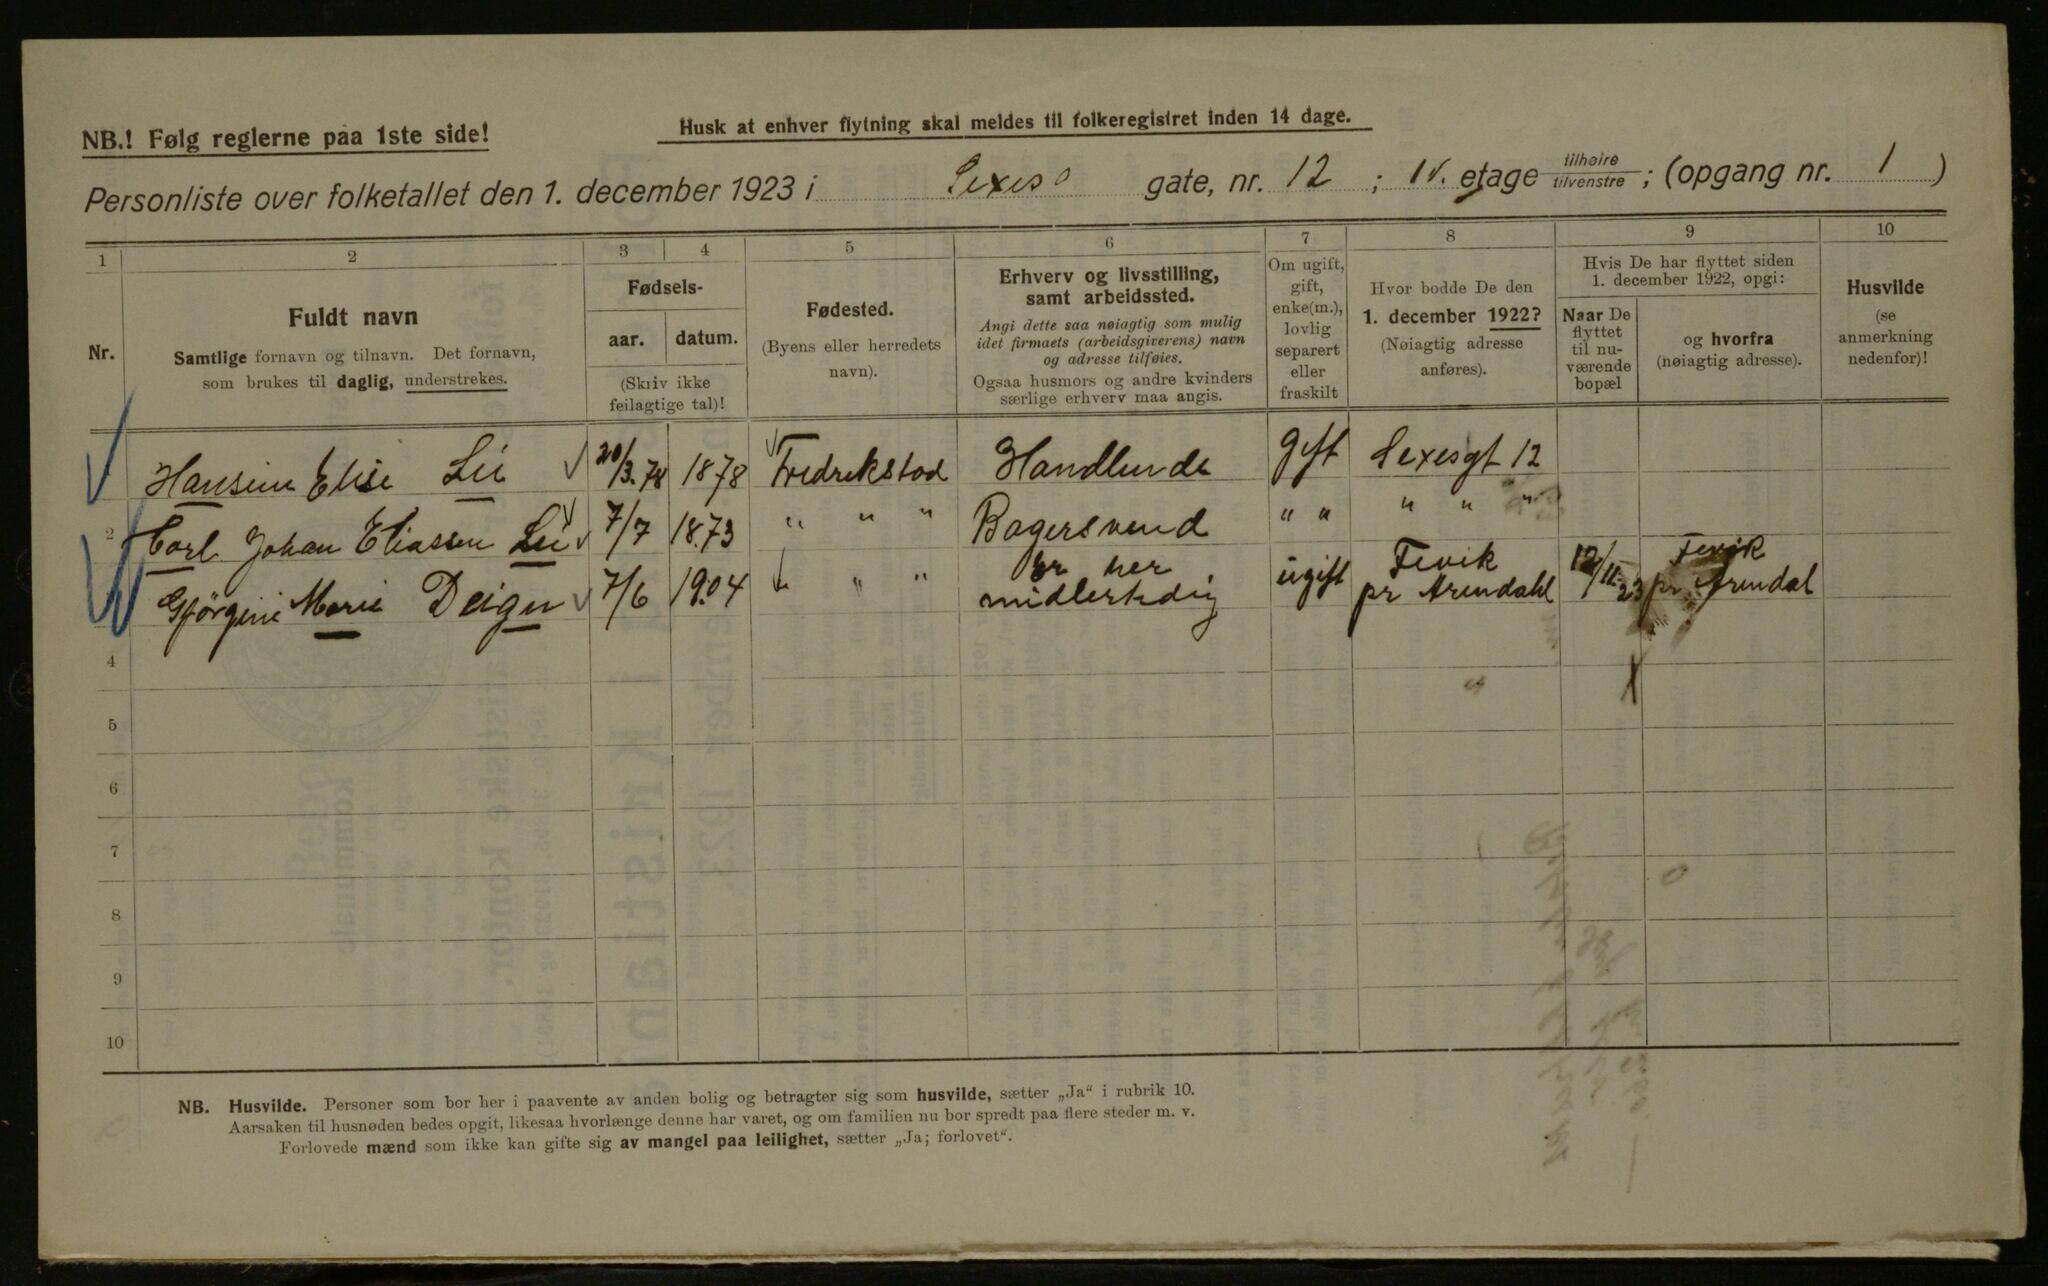 NB.! Følg reglerne paa 1ste side!
Husk at enhver flytning skal meldes til folkeregistret inden 14 dage.
Personliste over folketallet den 1. december 1923 i Sexes gate, nr. 12 ; IV. etage tilhøire tilvenstre ; (opgang nr. 1 )
1 2 3 4 5 6 7 8 9 10
Nr.
Fuldt navn
Samtlige fornavn og tilnavn. Det fornavn,
som brukes til daglig, understrekes.
Fødsels-
aar. datum.
(Skriv ikke
feilagtige tal)!
Fødested.
(Byens eller herredets
navn).
Erhverv og livsstilling,
samt arbeidssted.
Angi dette saa nøiagtig som mulig
idet firmaets (arbeidsgiverens) navn
og adresse tilføies.
Ogsaa husmors og andre kvinders
særlige erhverv maa angis.
Om ugift,
gift,
enke(m.),
lovlig
separert
eller
fraskilt
Hvor bodde De den
1. december 1922?
(Nøiagtig adresse
anføres).
Hvis De har flyttet siden
1. december 1922, opgi:
Naar De
flyttet
til nu-
værende
bopæl
og hvorfra
(nøiagtig adresse).
Husvilde
(se
anmerkning
nedenfor)!
Hansine Elise Lie 20/3.78 1878 Fredrekstad Handlende gift Sexesgt 12
2 Carl Johan Eliassen Lie 7/7 1873 " " " Bagersvend " " " " "
Gjørgine Marie Deign 7/6 1904 " " er her midlertidig ugift Fevik pr Arendahl 12/11-23 Fevik pr. Arendal
4
5
6
7
8
9
10
NB. Husvilde. Personer som bor her i paavente av anden bolig og betragter sig som husvilde, sætter „Ja“ i rubrik 10.
Aarsaken til husnøden bedes opgit, likesaa hvorlænge denne har varet, og om familien nu bor spredt paa flere steder m. v.
Forlovede mænd som ikke kan gifte sig av mangel paa leilighet, sætter „Ja; forlovet“.